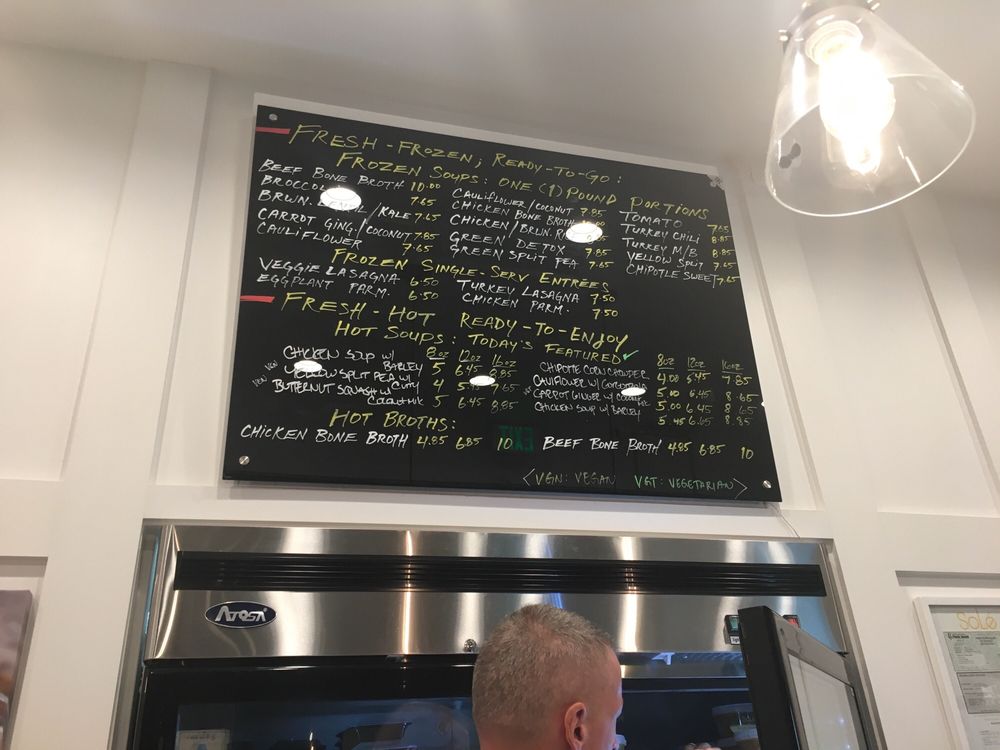 FRESH-FROZEN; READY-TO-GO:
FROZEN SOUPS: ONE (1) POUND PORTIONS
BEEF BONE BROTH 10.00
7.65
BRWN. /KALE 7.65
CARROT GING./COCONUT 7.85
CAULIFLOWER 7.65
CAULIFLOWER/COCONUT 7.85
CHICKEN BONE BROTH
CHICKEN/BRWN.
GREEN DETOX 7.85
GREEN SPLIT PEA 7.65
TOMATO 7.65
TURKEY CHILI 8.85
TURKEY M/B 8.85
YELLOW SPLIT 7.65
CHIPOTLE SWEET 7.65
FROZEN SINGLE-SERV ENTRÉES
VEGGIE LASAGNA 6.50
EGGPLANT PARM. 6.50
TURKEY LASAGNA 7.50
CHICKEN PARM. 7.50
FRESH-HOT READY-TO-ENJOY
HOT SOUPS: TODAY'S FEATURED
8oz 12oz 16oz
CHICKEN SOUP W/ BARLEY 5 6.45 8.85
SPLIT PEA W/ CURRY 4 7.65
BUTTERNUT SQUASH W/ COCONUT MLK 5 6.45 8.85
8oz 12oz 16oz
CHIPOTLE CORN CHOWDER 4.00 5.45 7.85
CAULIFLOWER W/ 5.00 6.45 8.65
CARROT GINGER W/ 5.00 6.45 8.65
CHICKEN SOUP W/ BARLEY 5.45 6.65 8.85
HOT BROTHS:
CHICKEN BONE BROTH 4.85 6.85 10
BEEF BONE BROTH 4.85 6.85 10
<VGN: VEGAN VGT: VEGETARIAN>
ATOSA
Sole